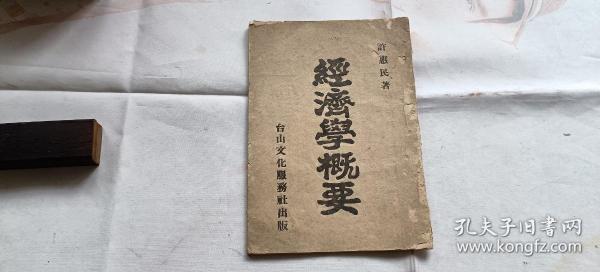 許惠民著
經濟學概要
台山文化服務社出版
孔夫子旧书网
www.kongfz.com